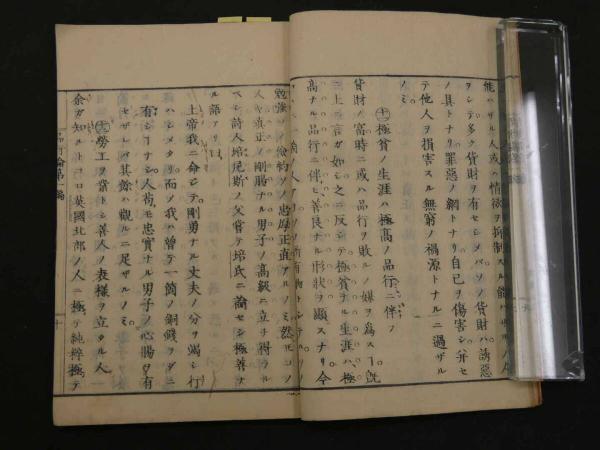 能ハザル人或ハ情欲ヲ抑制スル能ハザル人
ヲシテ多ク貨財ヲ有セシメバソノ貨財ハ誘惡
ノ具トナリ罪惡ノ網トナリ自己ヲ傷害シ并セ
テ他人ヲ損害スル無窮ノ禍源トナルニ過ザル
ノミ
極貧ノ生涯ハ極高ノ品行ニ伴フ
貨財ノ富時ニ或ハ品行ヲ敗ルノ媒ヲ爲スヿ既
ニ上ニ言ガ如シ之ニ反シテ極貧ナル生涯ハ極
高ナル品行ニ伴ヒ善良ナル形狀ヲ顯スナリ今
勉強ソノ儉約ソノ忠厚正直アルノミ然ㇾ𪜈コノ
人ハ眞正ノ剛勝ナル男子ノ高級ニ立チ得ラル
ベシ詩人培尼斯ノ父嘗テ培氏ニ諭セシ極善ナ
ル語アリ曰
上帝我ニ命シテ剛勇ナル丈夫ノ分ヲ竭シ行
ハシメタリ而ソ我ハ曾テ一箇ノ銅錢ヲダニ
有シヿナシ人苟モ忠實ナル男子ノ心腸ヲ有
セザレバ其餘ハ觀ルニ足ザルノミ
勞工ヲ業トシ善人ノ表樣ヲ立タル人
余ガ知ルトコロ英國北部ノ人ニ極テ純粹極テ
品行論第一編
十